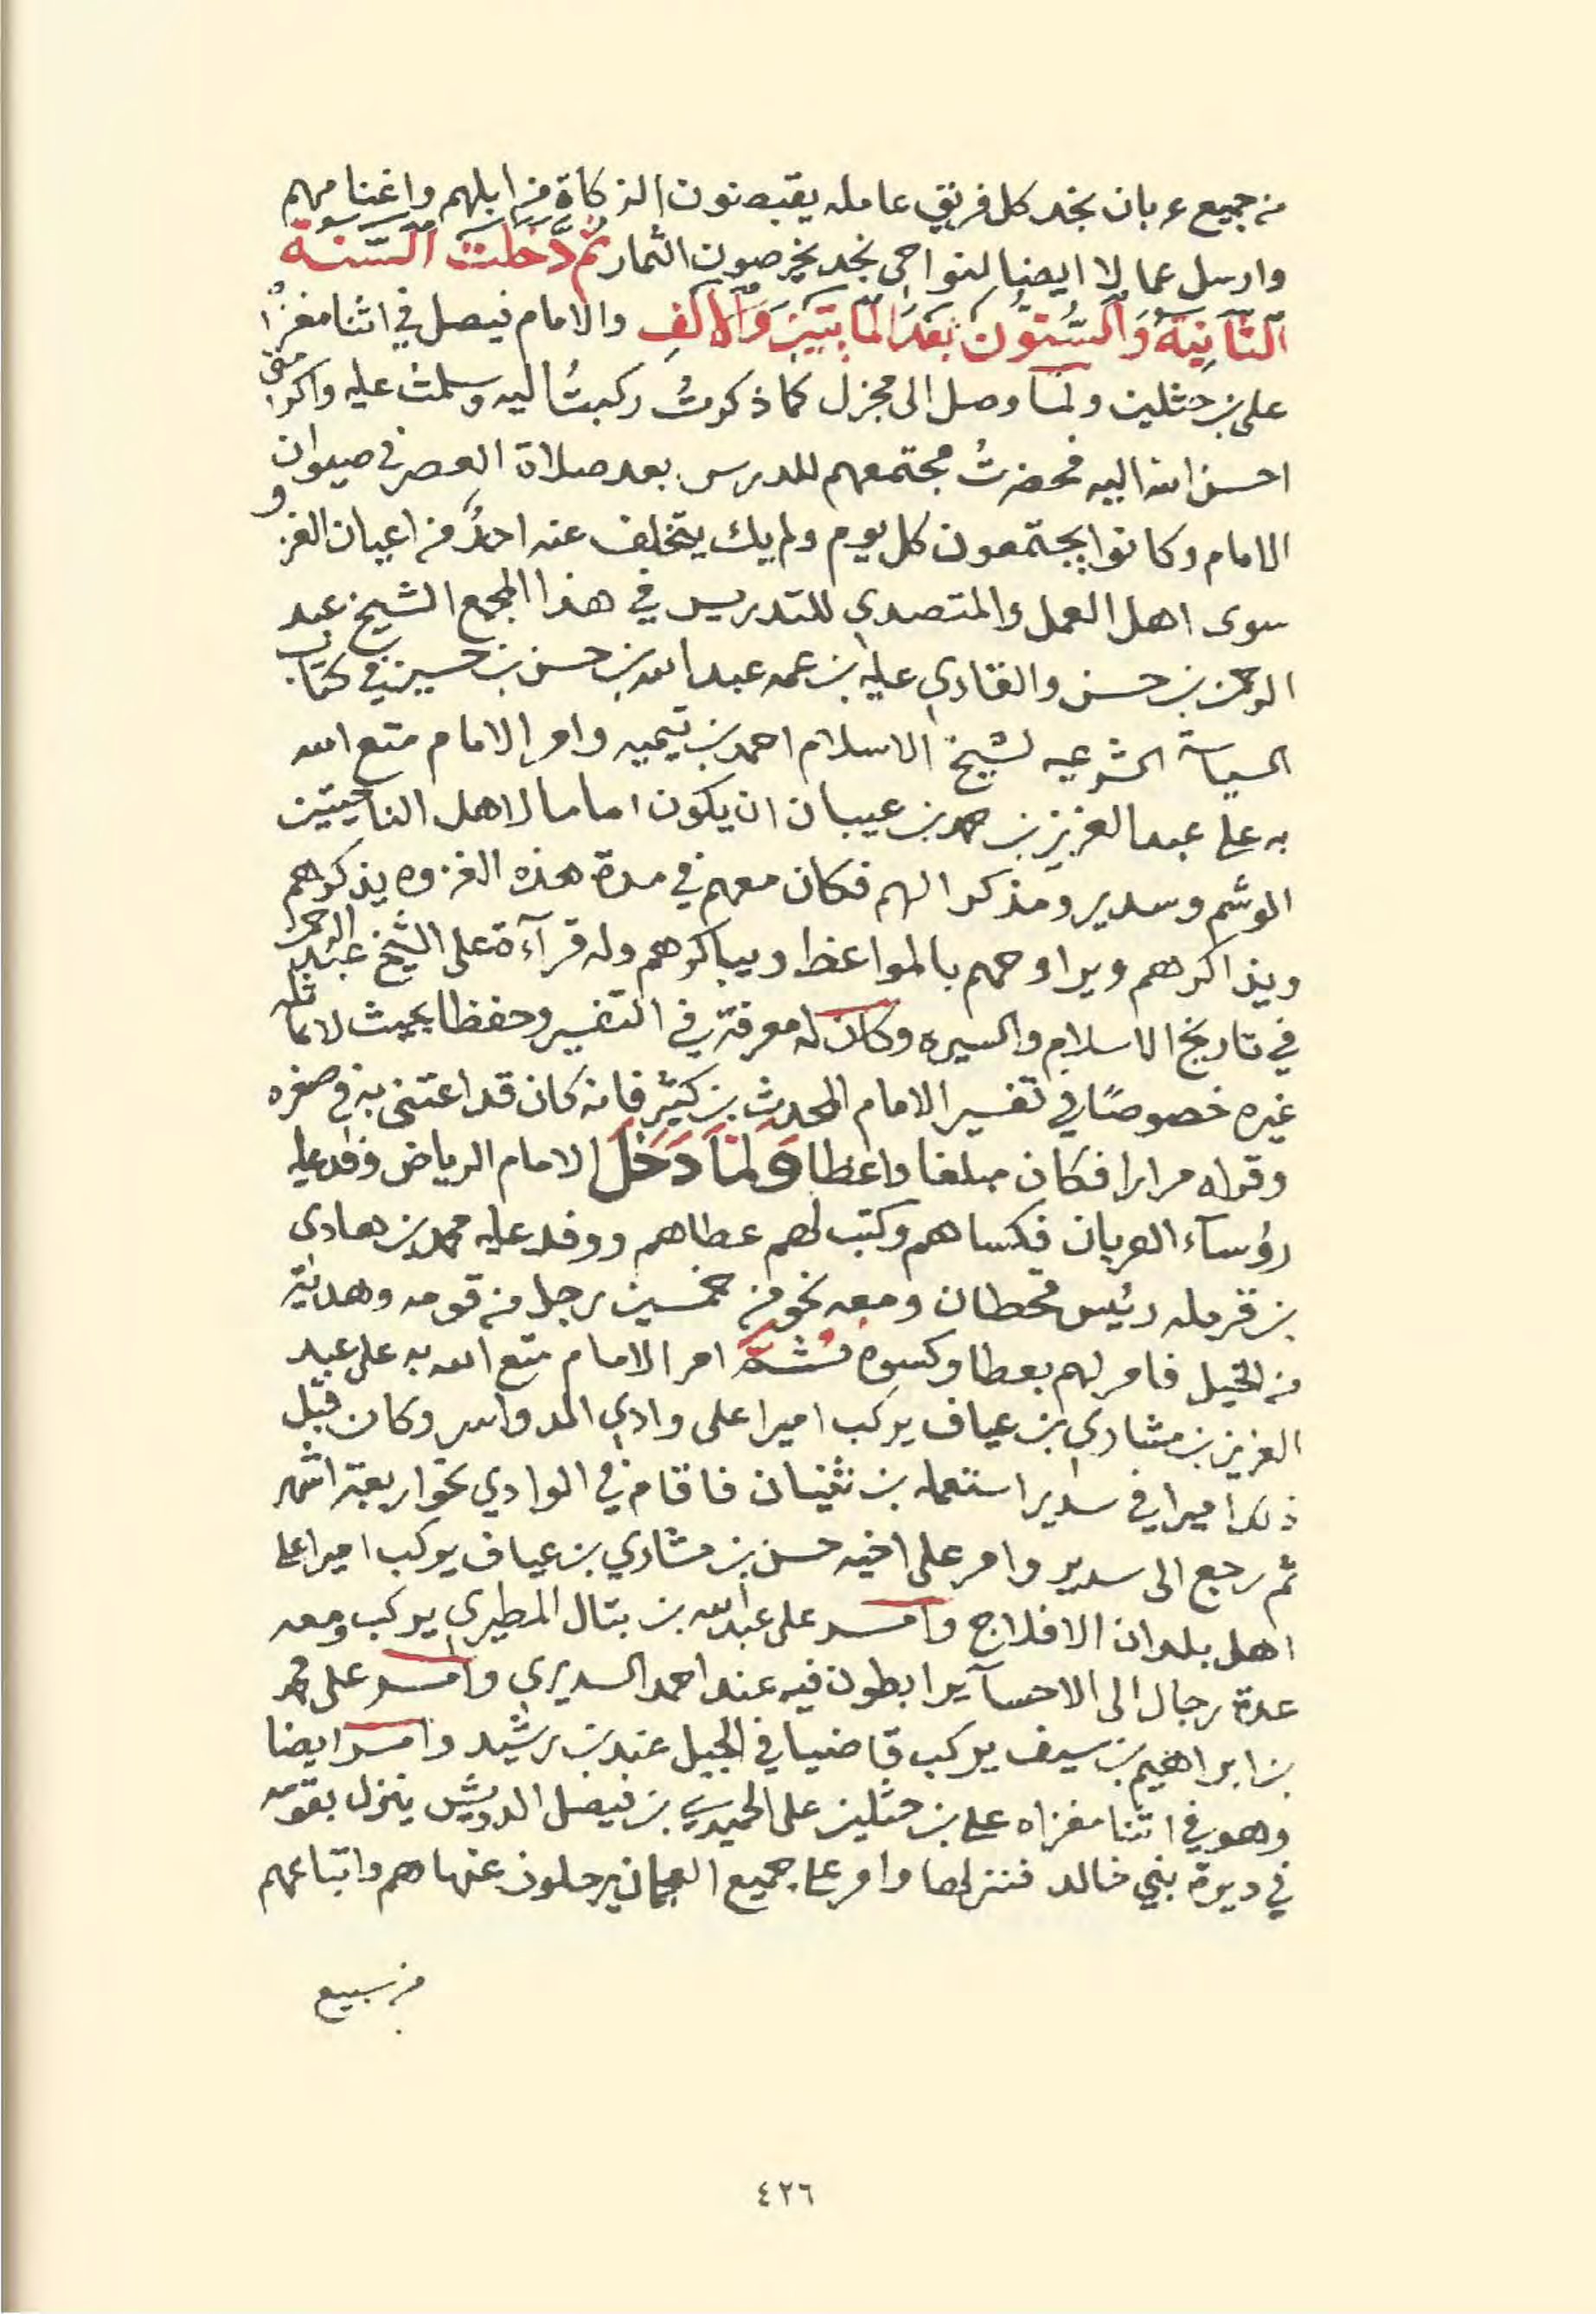 من جميع عربان نجد كل فريق عامله يقبضون الزكاة من ابلهم واغنامهم
وارسل عمالا ايضا لنواحي نجد يخرصون الثمار ثُمَّ دَخَلَت السَّنَة
الثَّانِيَةُ وَالسُّتوُّن بَعْدَ المَائتَيَنِ وَالأَلَفِ والامام فيصل في اثنا مغزاه
على بن حثلين ولما وصل الى مجزل كما ذكرتُ ركبتُ اليه وسلمت عليه واكرمني
احسن الله اليه فحضرتُ مجتمعهم للدرس بعد صلاة العصر في صيوان
الامام وكانوا يجتمعون كل يوم ولم يك يتخلف عنه احدٌ من اعيان الغزو
سوى اهل العمل والمتصدي للتدريس في هذا المجمع الشيخ عبد
الرحمن بن حسن والقاري عليه بن عمه عبدالله بن حسن بن حسين في كتاب
السياسة الشرعيه لشيخ الاسلام احمد بن تيميه وامر الامام متع الله
به على عبدالعزيز بن حمد بن عيبان ان يكون اماما لاهل الناحيتين
الوشم وسدير ومذكرا لهم فكان معهم في مدة هذه الغزوه يذكرهم
ويذاكرهم ويراوحهم بالمواعظ ويباكرهم وله قرآءة على الشيخ عبد الرحمن
في تاريخ الاسلام والسيره وكان له معرفة في التفسير وحفظا بحيث لا يماثله
غيره خصوصًا في تفسير الامام المحدث بن كثير فانه كان قد اعتنى به في صغره
وقراه مرارا فكان مبلغا واعظا وَلمَّا دَخَلَ الامام الرياض وفد عليه
رؤساء العربان فكساهم وكتب لهم عطاهم ووفد عليه محمد بن هادي
بن قرمله رئيس قحطان ومعه نحو من خمسين رجل من قومه وهديّة
من الخيل فامر لهم بعطا وكسوه ثُمَّ امر الامام متع الله به على عبد
العزيز بن مشاري بن عياف يركب اميرا على وادي الدواسر وكان قبل
ذلك اميرا في سدير استعمله بن ثنيان فاقام في الوادي نحو اربعة اشهر
ثم رجع الى سدير وامر على اخيه حسن بن مشاري بن عياف يركب اميرا على
اهل بلدان الافلاج وامر على عبدالله بن بتال المطيري يركب ومعه
عدة رجال الى الاحسآ يرابطون فيه عند احمد السديري وامر على محمد
بن ابراهيم بن سيف يركب قاضيا في الجبل عند بن رشيد وامر ايضا
وهو في اثنا مغزاه على بن حثلين على الحميدي بن فيصل الدويش ينزل بقومه
في ديرة بني خالد فنزلها وامر على جميع العجمان يرحلون عنها هم واتباعهم
من سبيع
٤٢٦